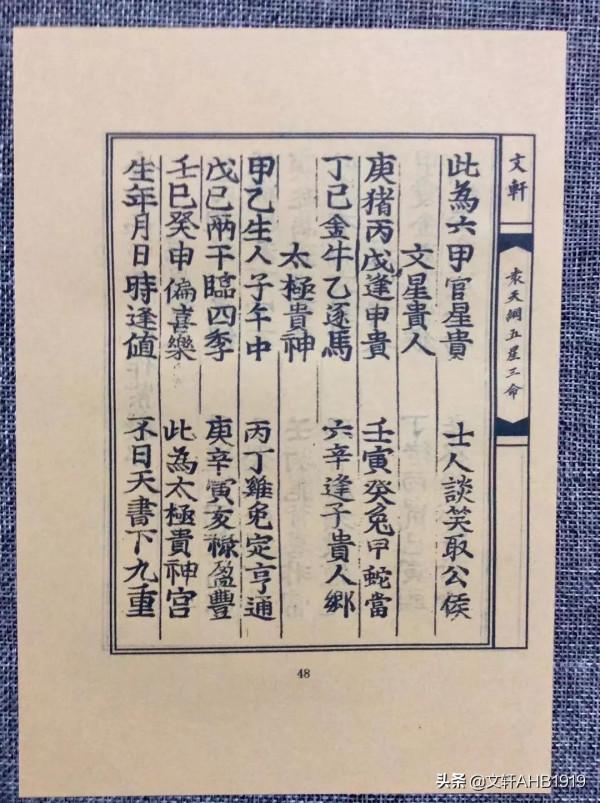 文軒
袁天綱五星三命
此為六甲官星貴 士人談笑取公侯
文星貴人
庚猪丙戊逢申貴 壬寅癸兔甲蛇當
丁己金牛乙逐馬 六辛逢子貴人鄉
太極貴神
甲乙生人子午中 丙丁雞兔定亨通
戊己兩干臨四季 庚辛寅亥祿盈豐
壬巳癸申偏喜樂 此為太極貴神宮
生年月日時逢値 不日天書下九重
48
头条 @文轩AHB1919